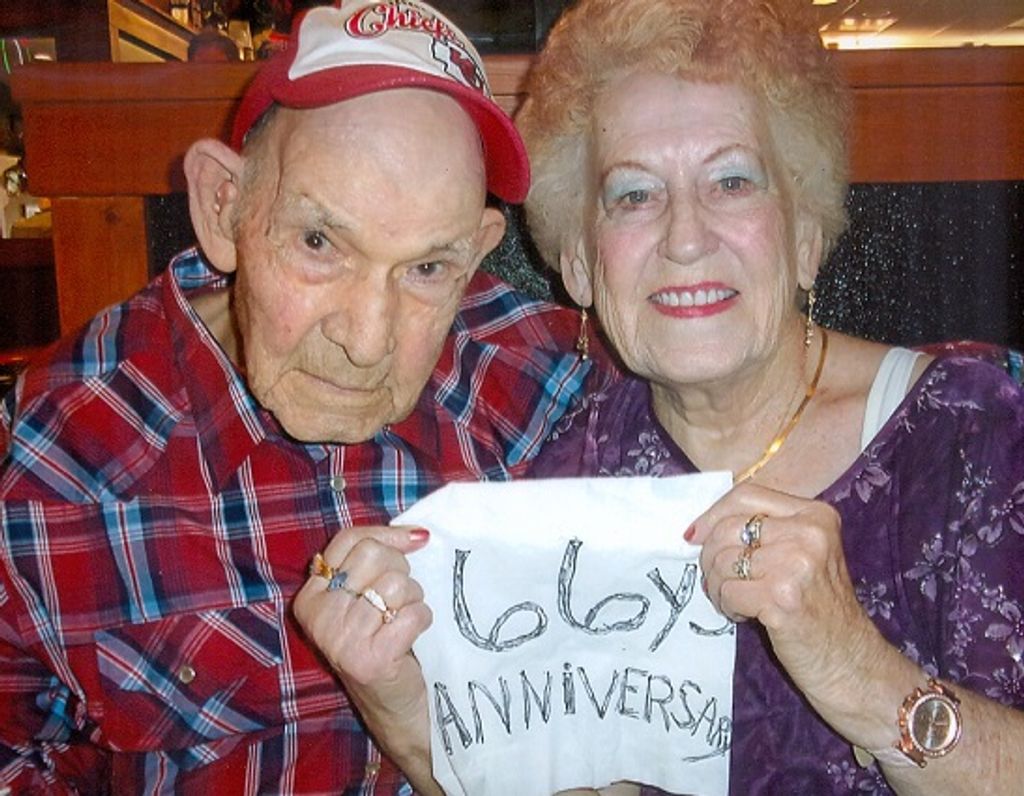 Chiefs
KC
66ys
ANNiVERSAR